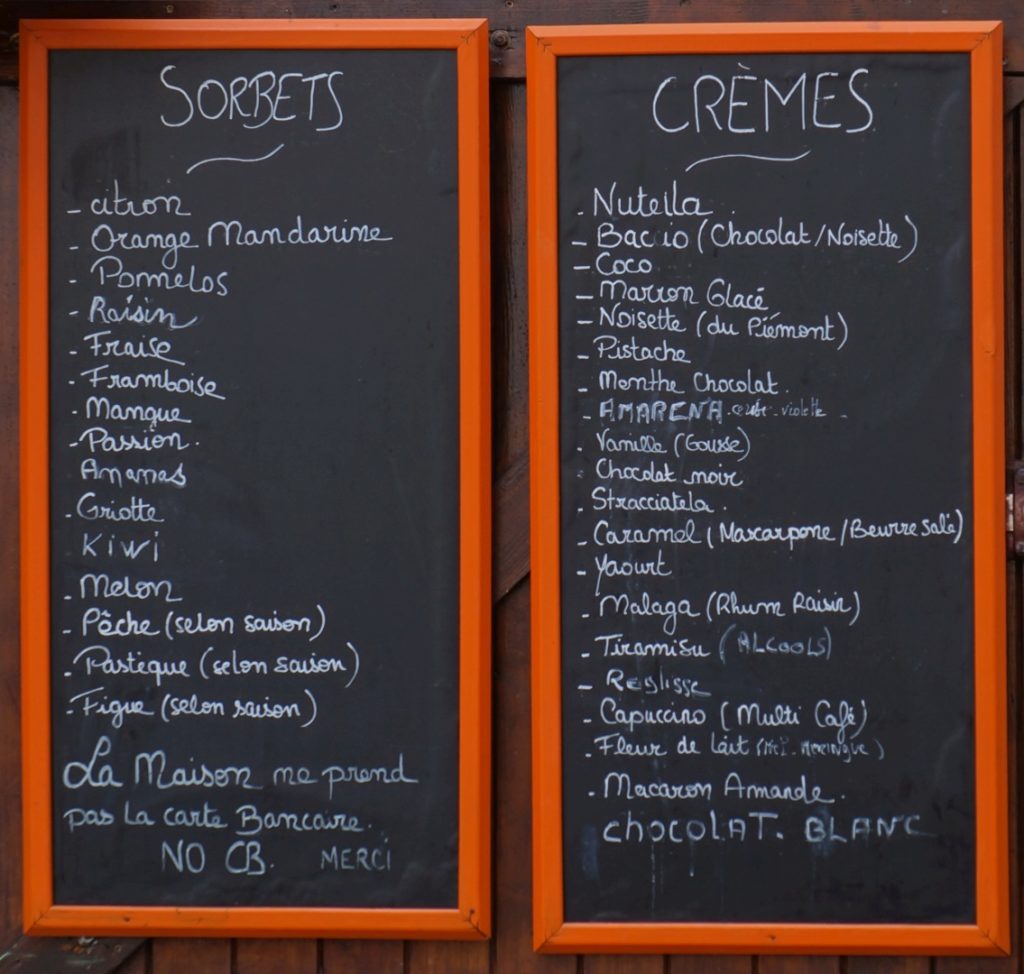 SORBETS
- citron
- Orange Mandarine
- Pomelos
- Raisin
- Fraise
- Framboise
- Mangue
- Passion.
Ananas
- Griotte
KIWI
- Melon
- Pêche (selon saison)
- Pasteque (selon saison)
- Figue (selon saison)
La Maison ne prend
pas la carte Bancaire.
NO CB. MERCI
CRÈMES
- Nutella
- Baccio (Chocolat/Noisette)
- Coco
- Marron Glacé
- Noisette (du Piémont)
- Pistache
- Menthe Chocolat.
- AMARENA - violette -
- Vanille (Gousse)
- Chocolat noir
- Stracciatela.
- Caramel (Mascarpone/Beurre salé)
- Yaourt
- Malaga (Rhum Raisin)
- Tiramisu (ALCOOLS)
- Reglisse
- Capuccino (Multi Café)
- Fleur de lait (Meringue)
- Macaron Amande.
chocolAT. BLANC